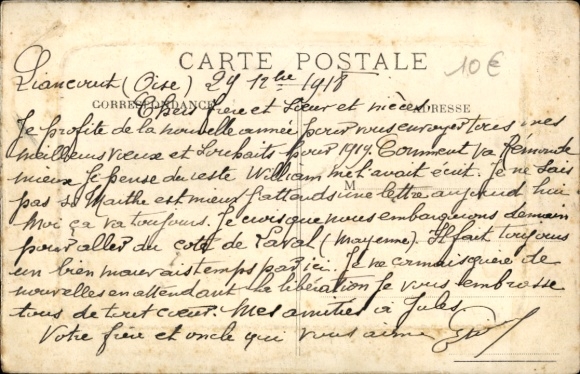 CARTE POSTALE
10€
Liancourt (Oise) 29 12bre 1918
CORRESPONDANCE
ADRESSE
Chers frère et Sœur et nièces
Je profite de la nouvelle année pour vous envoyer tous mes
meilleurs vœux et Souhaits pour 1919. Comment va Rémonde
mieux je pense du reste William me l'avait écrit. Je ne sais
pas si Marthe est mieux j'attends une lettre aujourd'hui
M
Moi ça va toujours. Je crois que nous embarquerons demain
pour aller du coté de Laval (Mayenne). Il fait toujours
un bien mauvais temps par ici. Je ne connais guère de
nouvelles en attendant la libération Je vous embrasse
tous de tout cœur. Mes amitiés à Jules
Votre frère et oncle qui vous aime